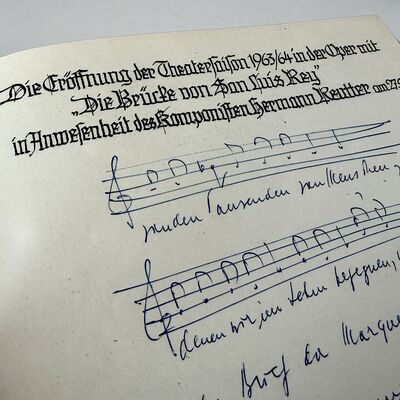 Die Eröffnung der Theatersaison 1963/64 in der Oper mit
„Die Brücke von San Luis Rey"
in Anwesenheit des Komponisten Hermann Reutter am
von den Tausenden von Menschen,
denen wir im Leben begegnen,